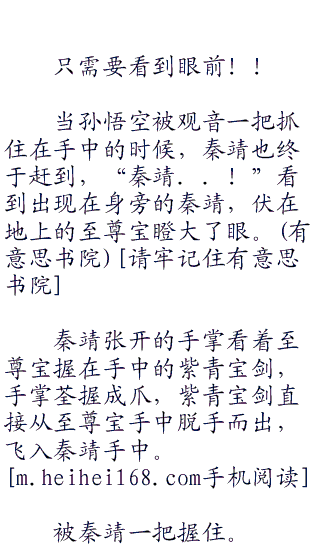 只需要看到眼前！！
当孙悟空被观音一把抓
住在手中的时候，秦靖也终
于赶到，“秦靖．．！”看
到出现在身旁的秦靖，伏在
地上的至尊宝瞪大了眼。(有
意思书院)[请牢记住有意思
书院]
秦靖张开的手掌看着至
尊宝握在手中的紫青宝剑，
手掌荃握成爪，紫青宝剑直
接从至尊宝手中脱手而出，
飞入秦靖手中。
[m.heihei168.com手机阅读]
被秦靖一把握住。